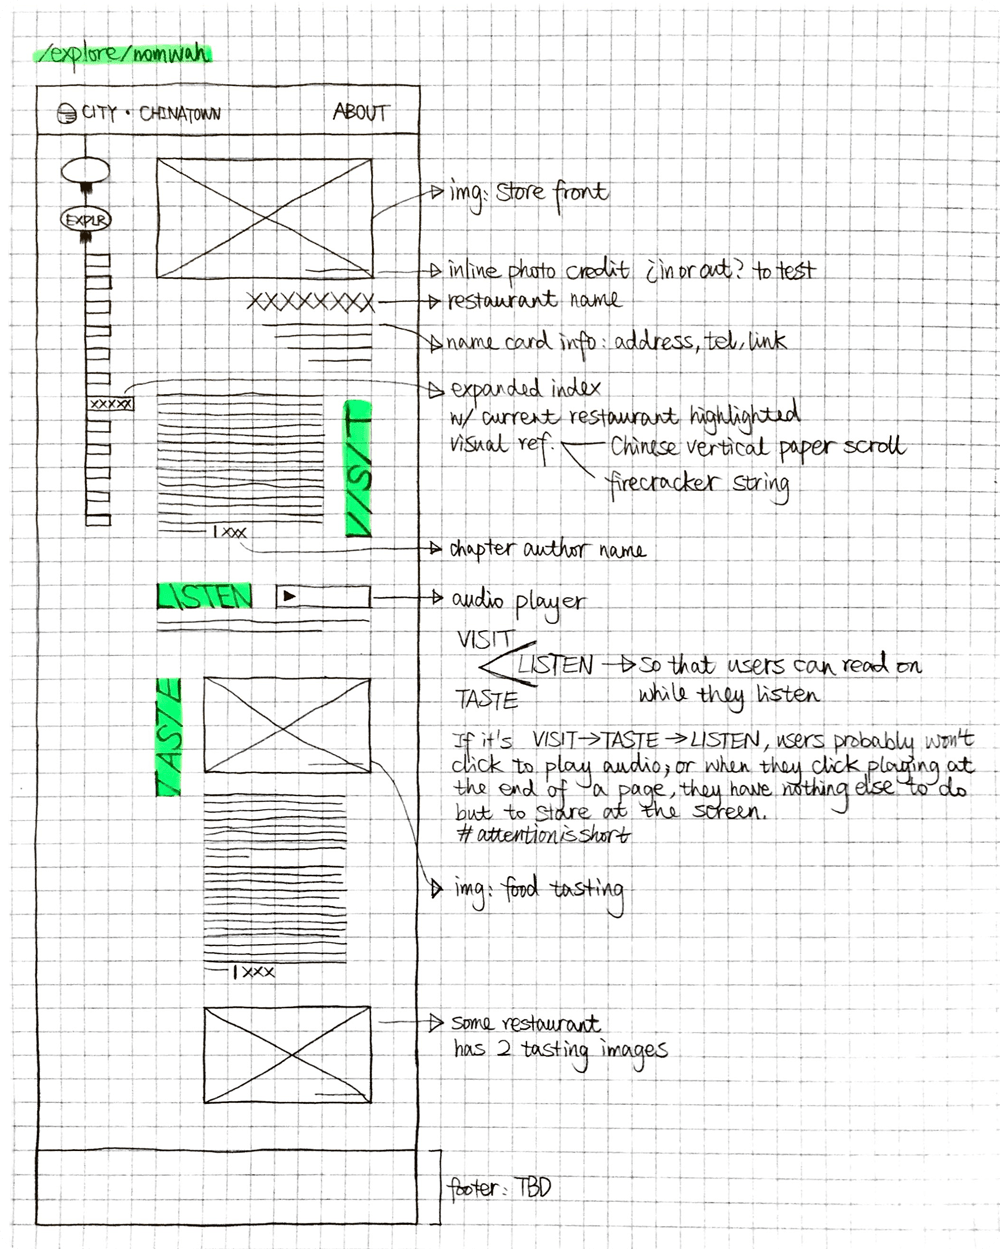 /explore/nomwah
CITY · CHINATOWN
ABOUT
EXPLR
img: store front
inline photo credit ¿in or out? to test
XXXXXXXX
restaurant name
name card info: address, tel, link
expanded index
w/ current restaurant highlighted
visual ref.
Chinese vertical paper scroll
firecracker string
XXXXX
VISIT
| xxx
chapter author name
LISTEN
audio player
VISIT
LISTEN → so that users can read on
while they listen
TASTE
TASTE
If it's VISIT→TASTE→LISTEN, users probably won't
click to play audio; or when they click playing at
the end of a page, they have nothing else to do
but to stare at the screen.
#attentionisshort
img: food tasting
| xxx
some restaurant
has 2 tasting images
footer: TBD